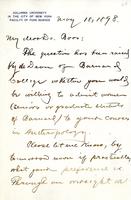 COLUMBIA UNIVERSITY
IN THE CITY OF NEW YORK
FACULTY OF PURE SCIENCE
May 18, 1898.
My dear Dr. Boas:
The question has been raised
by the Dean of Barnard
College whether you would be
willing to admit women
(seniors or graduate students
of Barnard) to your courses
in Anthropology.
Please let me know, by
if practicable,
what your preference is.
Through an oversight at